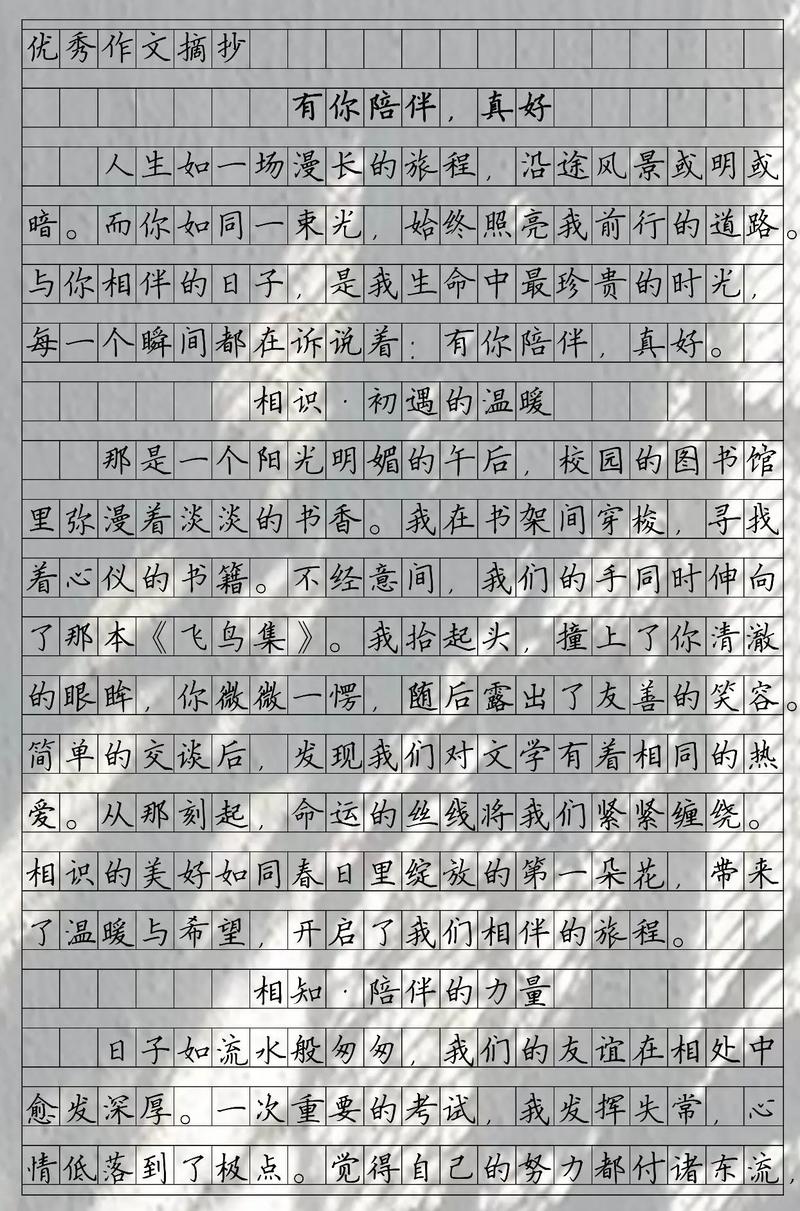 优秀作文摘抄
有你陪伴，真好
人生如一场漫长的旅程，沿途风景或明或
暗。而你如同一束光，始终照亮我前行的道路。
与你相伴的日子，是我生命中最珍贵的时光，
每一个瞬间都在诉说着：有你陪伴，真好。
相识·初遇的温暖
那是一个阳光明媚的午后，校园的图书馆
里弥漫着淡淡的书香。我在书架间穿梭，寻找
着心仪的书籍。不经意间，我们的手同时伸向
了那本《飞鸟集》。我抬起头，撞上了你清澈
的眼眸，你微微一愣，随后露出了友善的笑容。
简单的交谈后，发现我们对文学有着相同的热
爱。从那刻起，命运的丝线将我们紧紧缠绕。
相识的美好如同春日里绽放的第一朵花，带来
了温暖与希望，开启了我们相伴的旅程。
相知·陪伴的力量
日子如流水般匆匆，我们的友谊在相处中
愈发深厚。一次重要的考试，我发挥失常，心
情低落到了极点。觉得自己的努力都付诸东流，